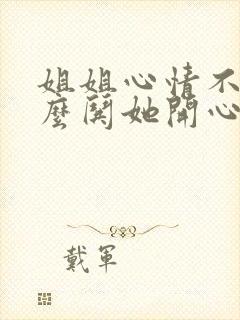 姐姐心情不
麼鬨她開心
戴軍